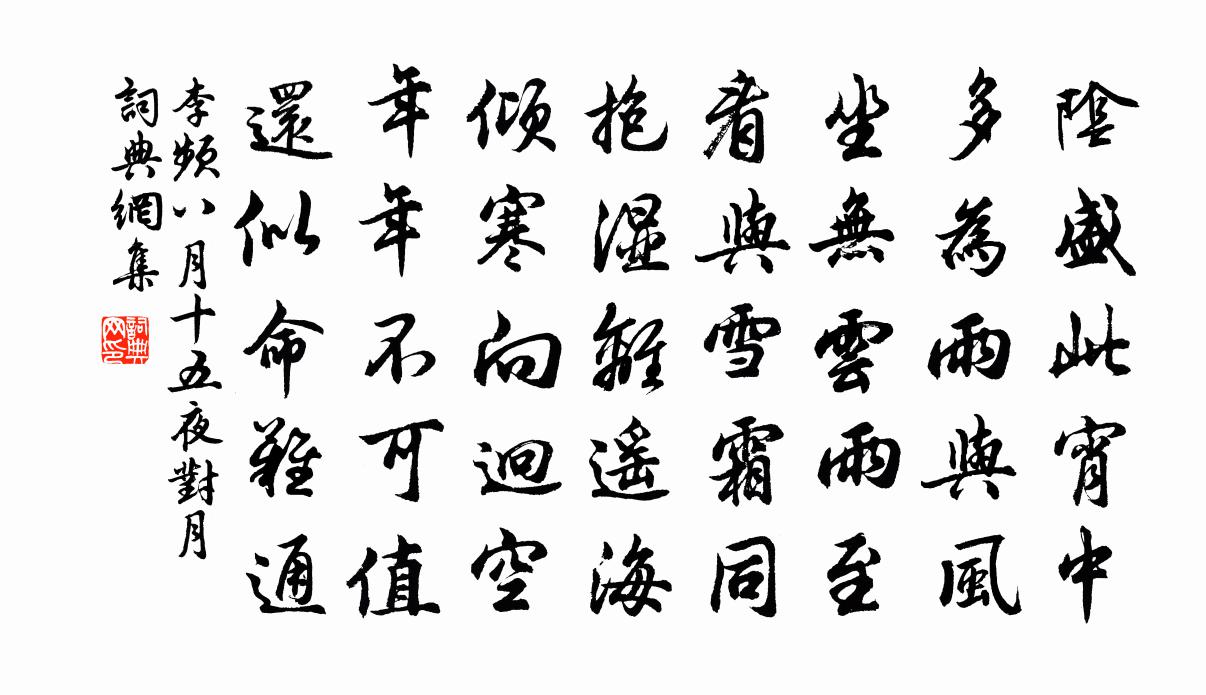 陰盛此宵中
多為雨與風
坐無雲雨至
看與雪霜同
抱濕離遙海
傾寒向迥空
年年不可值
還似命難通
李頻八月十五夜對月
詞典網集
詞典网印